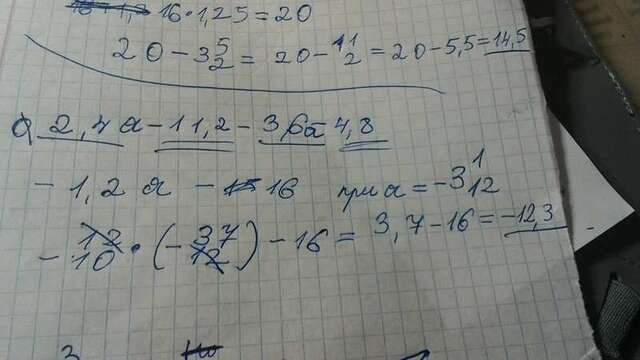 16 · 1,25 = 20
20 - 3 5/2 = 20 - 11/2 = 20 - 5,5 = 14,5
2,4a - 11,2 - 3,6a - 4,8
- 1,2a - 16 при a = -3 1/12
- 12/10 · (- 37/12) - 16 = 3,7 - 16 = -12,3
3